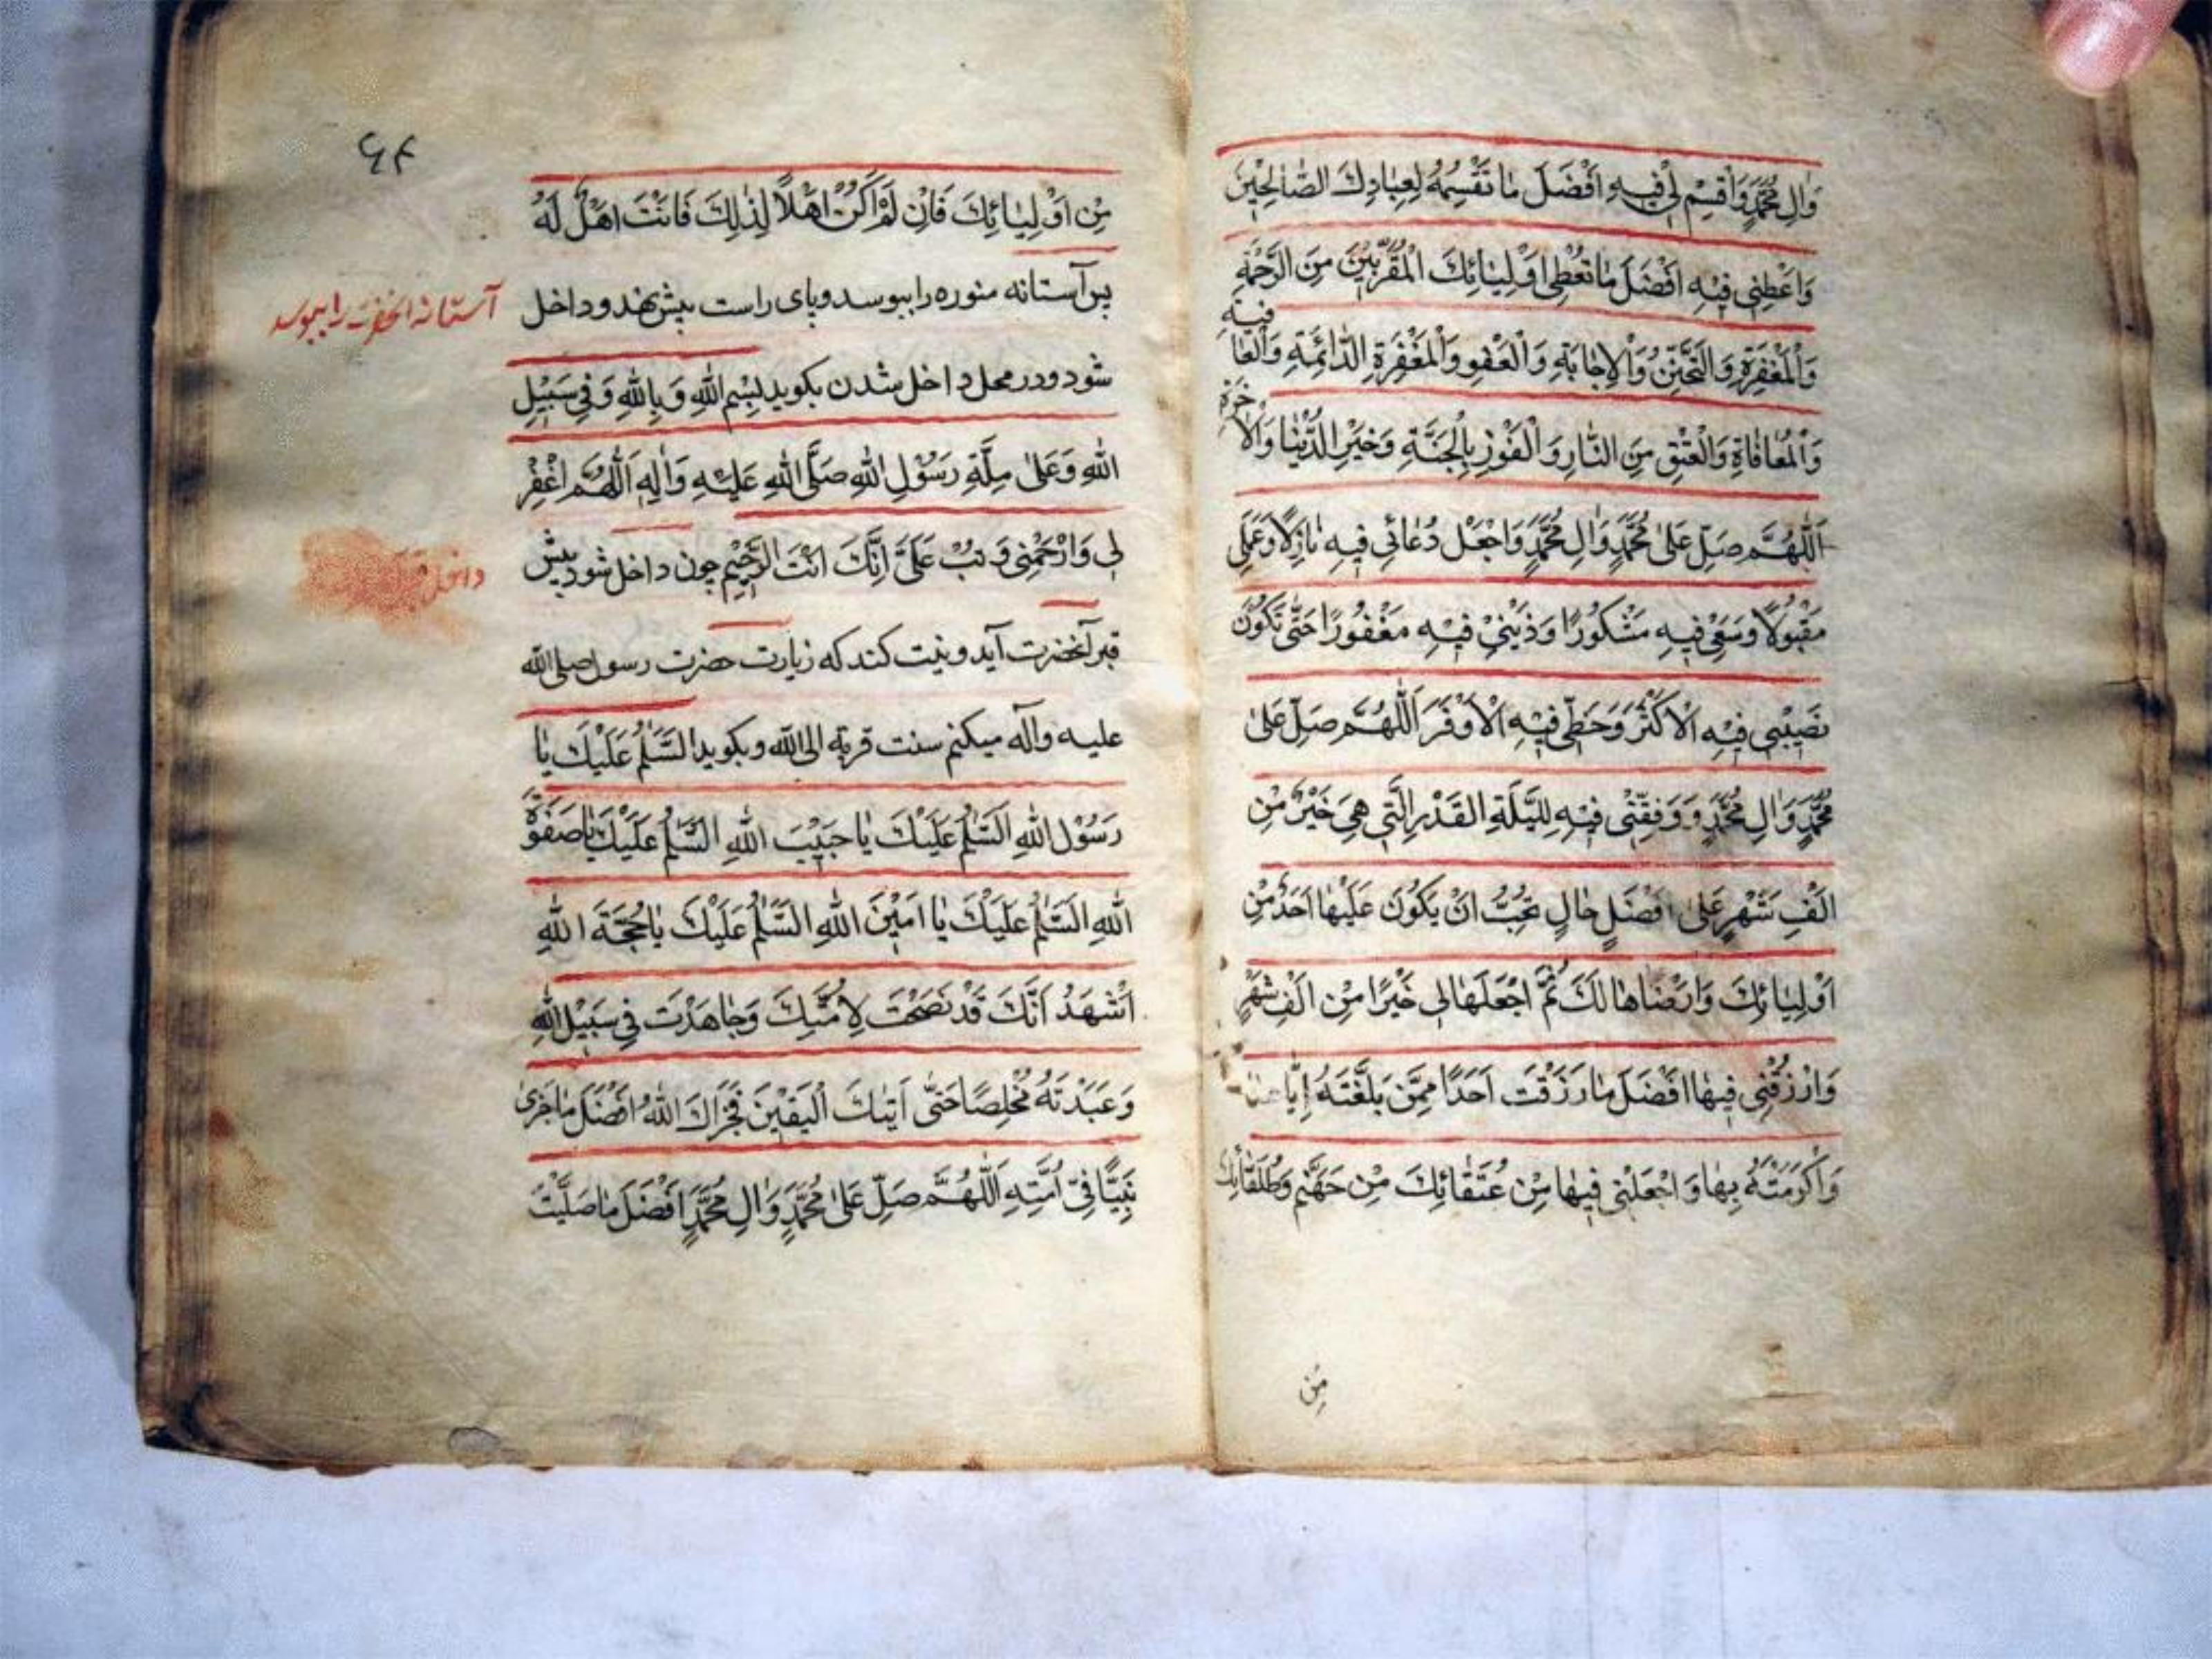 وَالِ مُحَمَّدٍ وَاقْسِمْ لِي فِيهِ اَفْضَلَ مَا تَقْسِمُهُ لِعِبَادِكَ الصَّالِحِيْنَ
وَاَعْطِنِي فِيْهِ اَفْضَلَ مَا تُعْطِي اَوْلِيَائِكَ الْمُقَرَّبِيْنَ مِنَ الرَّحْمَةِ
وَالْمَغْفِرَةِ وَالتَّحَنُّنِ وَالْاِجَابَةِ وَالْعَفْوِ وَالْمَغْفِرَةِ الدَّائِمَةِ وَالْعَافِيَةِ
وَالْمُعَافَاةِ وَالْعِتْقِ مِنَ النَّارِ وَالْفَوْزِ بِالْجَنَّةِ وَخَيْرِ الدُّنْيَا وَالْاٰخِرَةِ
اَللّٰهُمَّ صَلِّ عَلٰى مُحَمَّدٍ وَالِ مُحَمَّدٍ وَاجْعَلْ دُعَائِي فِيهِ وَعَمَلِي
مَقْبُولًا وَسَعْيِي فِيهِ مَشْكُورًا وَذَنْبِيْ فِيْهِ مَغْفُورًا حَتّٰى تَكُوْنَ
نَصِيْبِي فِيْهِ الْاَكْثَرَ وَحَظِّي فِيْهِ الْاَوْفَرَ اَللّٰهُمَّ صَلِّ عَلٰى
مُحَمَّدٍ وَالِ مُحَمَّدٍ وَوَفِّقْنِي فِيْهِ لِلَيْلَةِ الْقَدْرِ الَّتِي هِيَ خَيْرٌ مِنْ
اَلْفِ شَهْرٍ عَلٰى اَفْضَلِ حَالٍ تُحِبُّ اَنْ يَكُوْنَ عَلَيْهَا اَحَدٌ مِنْ
اَوْلِيَائِكَ وَاَرْضَاهَا لَكَ ثُمَّ اجْعَلْهَا لِي خَيْرًا مِنْ اَلْفِ شَهْرٍ
وَارْزُقْنِي فِيهَا اَفْضَلَ مَا رَزَقْتَ اَحَدًا مِمَّنْ بَلَّغْتَهُ اِيَّاهَا
وَاَكْرَمْتَهُ بِهَا وَاجْعَلْنِي فِيهَا مِنْ عُتَقَائِكَ مِنْ جَهَنَّمَ وَطُلَقَائِكَ
مِنْ
۶۴
مِنْ اَوْلِيَائِكَ فَاِنْ لَمْ اَكُنْ اَهْلًا لِذٰلِكَ فَاَنْتَ اَهْلٌ لَهُ
پس آستانه منوره را ببوسد و پای راست پیش نهد و داخل
آستانه آنحضرت را ببوسد
شود و در محل داخل شدن بکوید بِسْمِ اللّٰهِ وَبِاللّٰهِ وَفِي سَبِيْلِ
اللّٰهِ وَعَلٰى مِلَّةِ رَسُوْلِ اللّٰهِ صَلَّى اللّٰهِ عَلَيْهِ وَاٰلِهِ اَللّٰهُمَّ اغْفِرْ
لِي وَارْحَمْنِي وَتُبْ عَلَيَّ اِنَّكَ اَنْتَ الرَّحِيْمِ چون داخل شود پیش
داخل
قبر آنحضرت آید و نیت کند که زیارت حضرت رسول صلی الله
علیه وآله میکنم سنت قربة الی الله و بکوید اَلسَّلٰمُ عَلَيْكَ يَا
رَسُوْلَ اللّٰهِ اَلسَّلٰمُ عَلَيْكَ يَا حَبِيْبَ اللّٰهِ اَلسَّلٰمُ عَلَيْكَ يَا صَفْوَةَ
اللّٰهِ اَلسَّلٰمُ عَلَيْكَ يَا اَمِيْنَ اللّٰهِ اَلسَّلٰمُ عَلَيْكَ يَا حُجَّةَ اللّٰهِ
اَشْهَدُ اَنَّكَ قَدْ نَصَحْتَ لِاُمَّتِكَ وَجَاهَدْتَ فِي سَبِيْلِ اللّٰهِ
وَعَبَدْتَهُ مُخْلِصًا حَتّٰى اَتٰىكَ الْيَقِيْنَ فَجَزَاكَ اللّٰهُ اَفْضَلَ مَا جَزٰى
نَبِيًّا فِيْ اُمَّتِهِ اَللّٰهُمَّ صَلِّ عَلٰى مُحَمَّدٍ وَالِ مُحَمَّدٍ اَفْضَلَ مَا صَلَّيْتَ